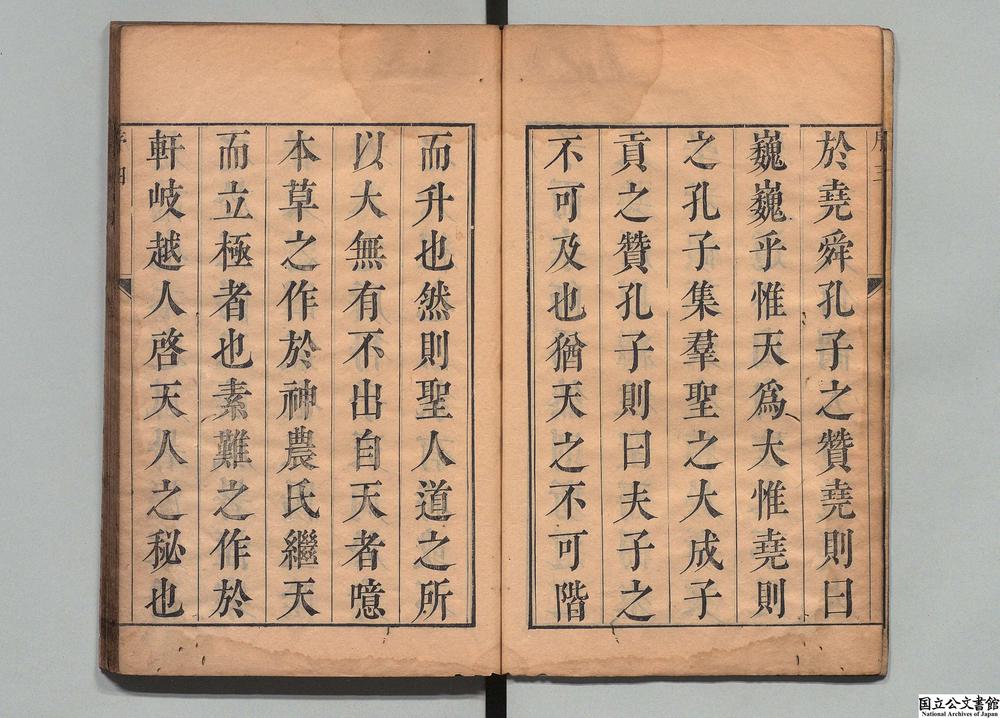 於堯舜孔子之贊堯則曰
巍巍乎惟天爲大惟堯則
之孔子集羣聖之大成子
貢之贊孔子則曰夫子之
不可及也猶天之不可階
而升也然則聖人道之所
以大無有不出自天者噫
本草之作於神農氏繼天
而立極者也素難之作於
軒岐越人啓天人之秘也
国立公文書館
National Archives of Japan